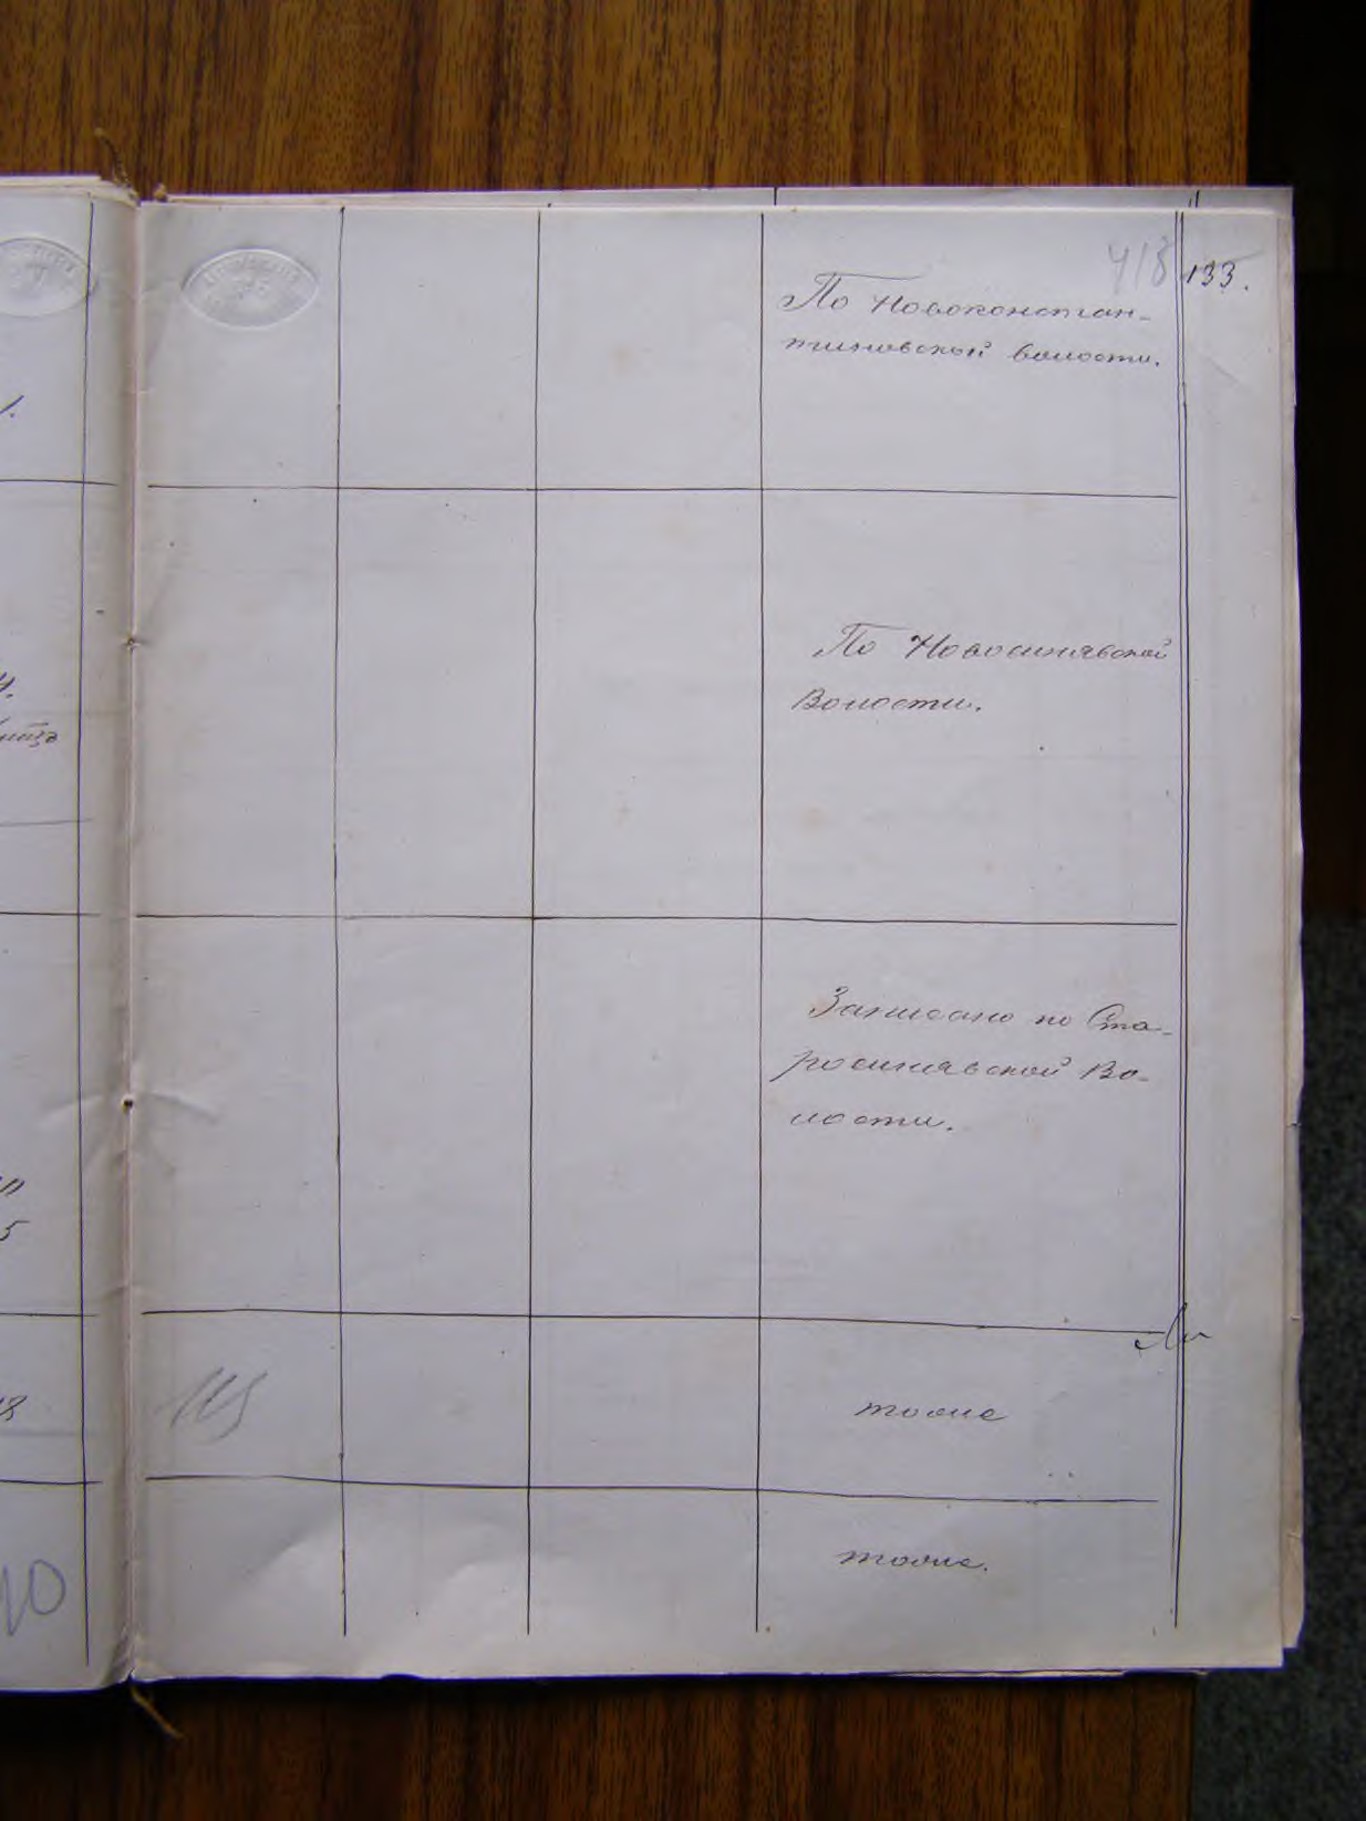 418 133.
По Новоконстан-
тиновской волости.
По Новосинявской
Волости.
Записано по Ста-
росинявской Во-
лости.
тоже
115
тоже.
10